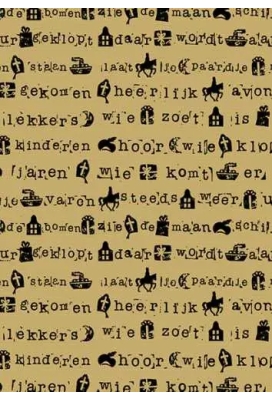 de bomen zie de maan schij
ur geklopt daar wordt a
n staan laat je paardje
gekomen heerlijk avon
lekkers wie zoet is
kinderen hoor wie klo
jaren wie komt er
je varen steeds weer
de bomen zie de maan schij
ur geklopt daar wordt a
n staan laat je paardje
gekomen heerlijk avon
lekkers wie zoet is
kinderen hoor wie klop
jaren wie komt er